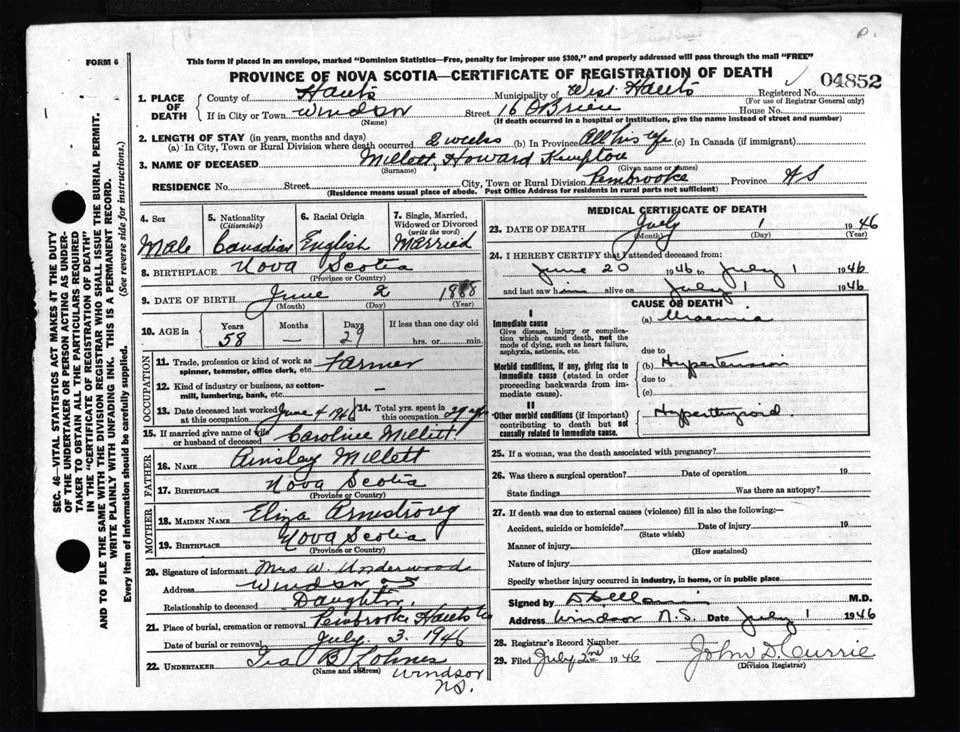 FORM 6
This form if placed in an envelope, marked "Dominion Statistics—Free, penalty for improper use $300," and properly addressed will pass through the mail "FREE"
PROVINCE OF NOVA SCOTIA—CERTIFICATE OF REGISTRATION OF DEATH
04852
1. PLACE OF DEATH
County of Hants Municipality of West Hants Registered No.
(For use of Registrar General only)
If in City or Town Windsor Street 16 O'Brien House No.
(Name) (If death occurred in a hospital or institution, give the name instead of street and number)
2. LENGTH OF STAY (in years, months and days)
(a) In City, Town or Rural Division where death occurred 2 weeks (b) In Province All his life (c) In Canada (if immigrant)
3. NAME OF DECEASED Millett, Howard Kempton
(Surname) (Given name or names)
RESIDENCE No. Street City, Town or Rural Division Pembrooke Province N S
(Residence means usual place of abode. Post Office Address for residents in rural parts not sufficient)
SEC. 46—VITAL STATISTICS ACT MAKES IT THE DUTY
OF THE UNDERTAKER OR PERSON ACTING AS UNDER-
TAKER TO OBTAIN ALL THE PARTICULARS REQUIRED
IN THE "CERTIFICATE OF REGISTRATION OF DEATH"
AND TO FILE THE SAME WITH THE DIVISION REGISTRAR WHO SHALL ISSUE THE BURIAL PERMIT.
WRITE PLAINLY WITH UNFADING INK. THIS IS A PERMANENT RECORD.
Every item of information should be carefully supplied. (See reverse side for instructions.)
4. Sex
Male
5. Nationality
(Citizenship)
Canadian
6. Racial Origin
English
7. Single, Married,
Widowed or Divorced
(write the word)
Married
8. BIRTHPLACE Nova Scotia
(Province or Country)
9. DATE OF BIRTH June 2 1888
(Month) (Day) (Year)
10. AGE in
Years Months Days If less than one day old
58 — 29 hrs. or min.
OCCUPATION
11. Trade, profession or kind of work as
spinner, teamster, office clerk, etc. Farmer
12. Kind of industry or business, as cotton-
mill, lumbering, bank, etc. —
13. Date deceased last worked
at this occupation June 4 1946
14. Total yrs. spent in
this occupation 29 yrs
15. If married give name of wife
or husband of deceased Caroline Millett
FATHER
16. NAME Ainslay Millett
17. BIRTHPLACE Nova Scotia
(Province or Country)
MOTHER
18. MAIDEN NAME Eliza Armstrong
19. BIRTHPLACE Nova Scotia
(Province or Country)
20. Signature of informant Mrs W. Underwood
Address Windsor NS
Relationship to deceased Daughter
21. Place of burial, cremation or removal Pembrooke Hants Co
Date of burial or removal July. 3. 1946
22. UNDERTAKER Ira B Lohnes
(Name and address) Windsor
NS.
MEDICAL CERTIFICATE OF DEATH
23. DATE OF DEATH July 1 1946
(Month) (Day) (Year)
24. I HEREBY CERTIFY that I attended deceased from:
June 20 1946 to July 1 1946
and last saw him alive on July 1 1946
CAUSE OF DEATH
I
Immediate cause
Give disease, injury or complica-
tion which caused death, not the
mode of dying, such as heart failure,
asphyxia, asthenia, etc.
(a) Uraemia
due to
Morbid conditions, if any, giving rise to
immediate cause (stated in order
proceeding backwards from im-
mediate cause).
(b) Hypertension
due to
(c)
II
Other morbid conditions (if important)
contributing to death but not
causally related to immediate cause.
Hyperthyroid.
25. If a woman, was the death associated with pregnancy?
26. Was there a surgical operation? Date of operation 19
State findings Was there an autopsy?
27. If death was due to external causes (violence) fill in also the following:—
Accident, suicide or homicide? Date of injury 19
(State which)
Manner of injury
(How sustained)
Nature of injury
Specify whether injury occurred in industry, in home, or in public place
Signed by M.D.
Address Windsor N.S. Date July 1 1946
28. Registrar's Record Number
29. Filed July 2nd 1946 John D. Currie
(Division Registrar)